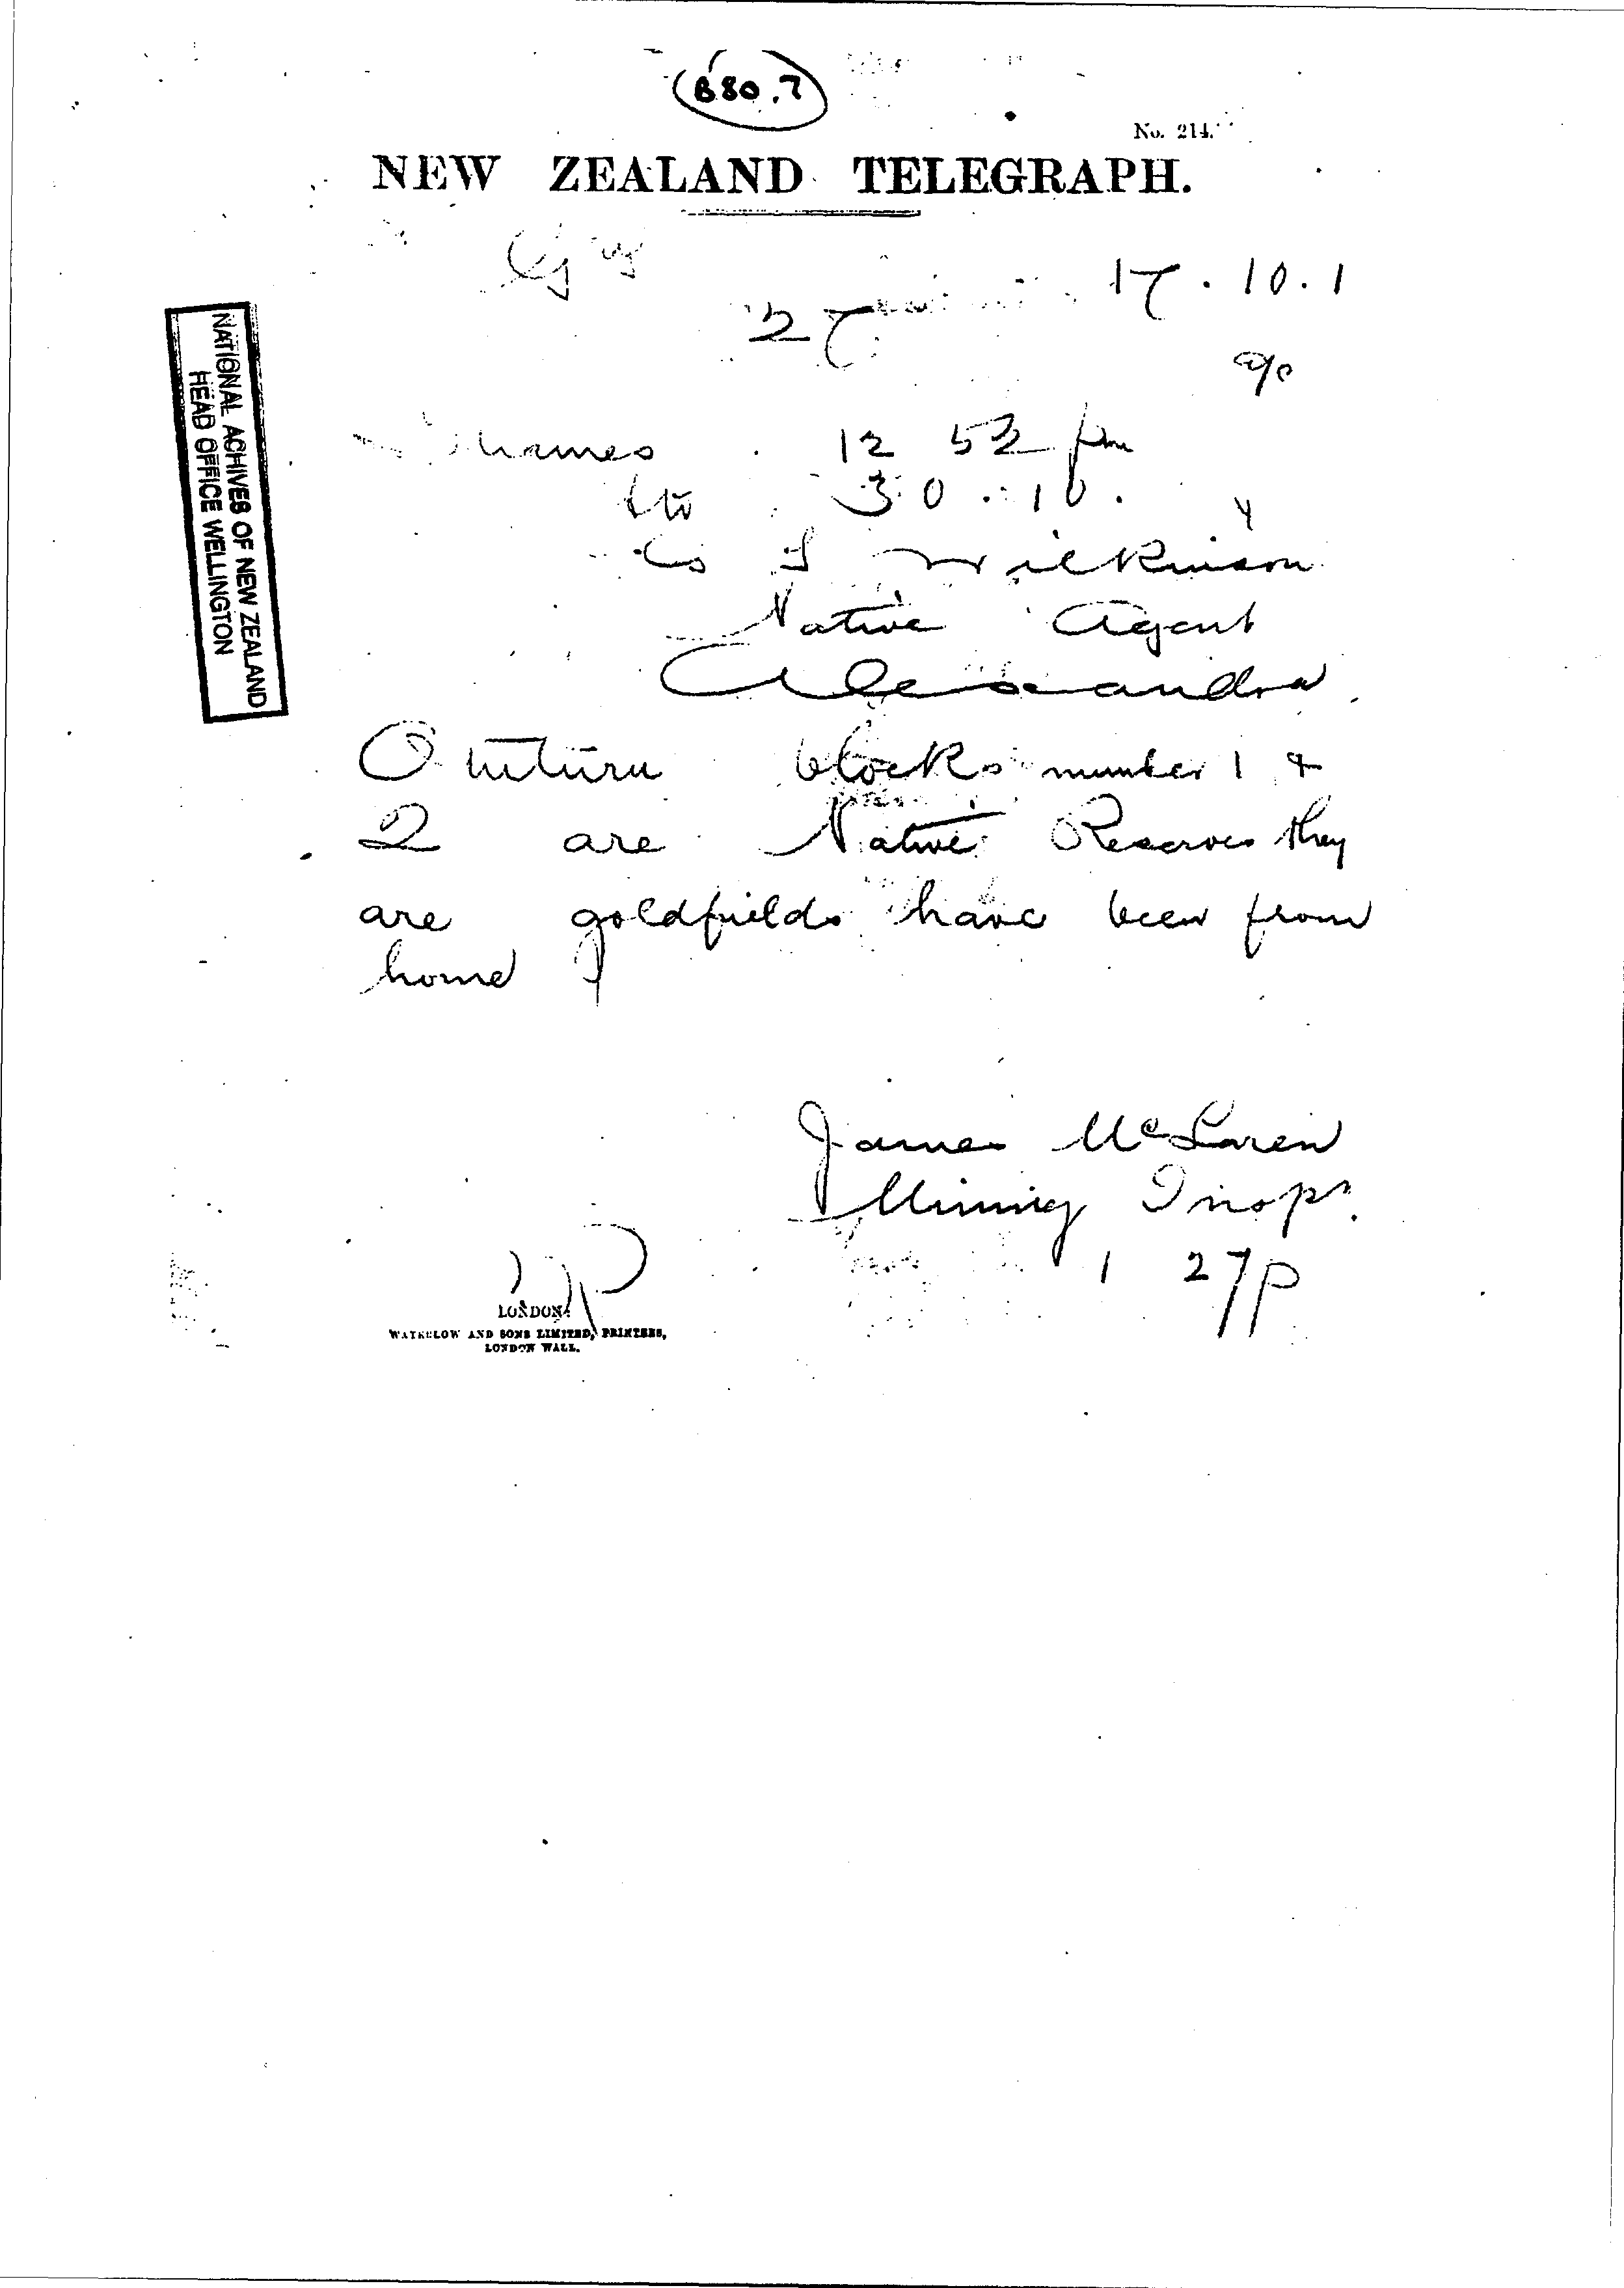 B80.7
No. 214.
NEW ZEALAND TELEGRAPH.
17.10.1
27
NATIONAL ACHIVES OF NEW ZEALAND
HEAD OFFICE WELLINGTON
Thames 12 52 pm
to 30.10.
Wilkinson
Native Agent
Alexandra
Omturu blocks number 1 &
2 are Native Reserves they
are goldfields have been from
home
James McLaren
Mining Inspr.
1 27p
LONDON:
WATERLOW AND SONS LIMITED, PRINTERS,
LONDON WALL.